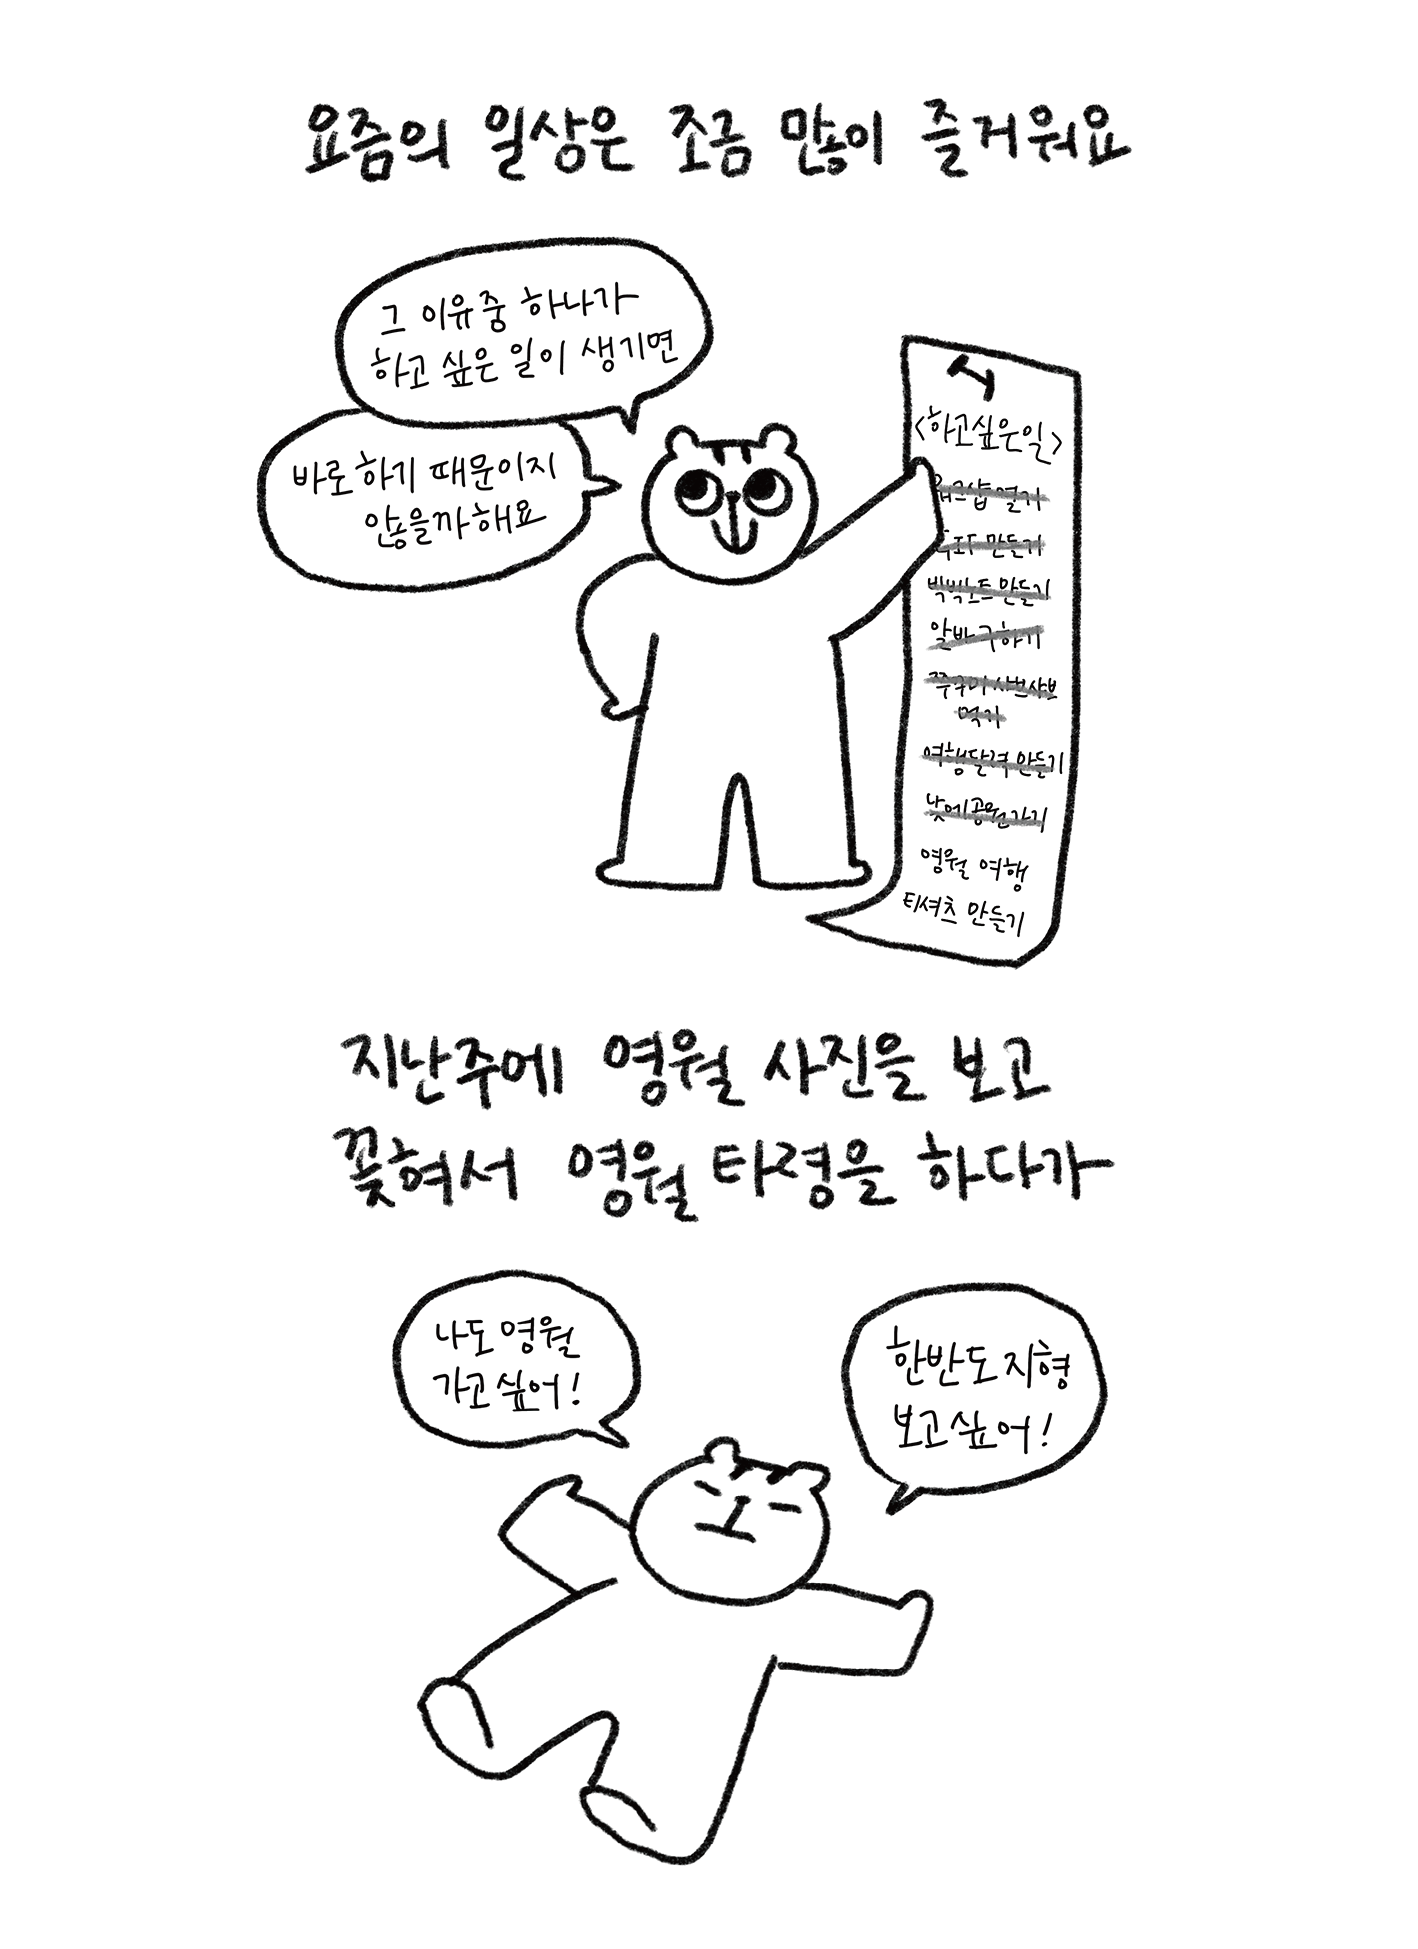 요즘의 일상은 조금 많이 즐거워요
그 이유중 하나가
하고 싶은 일이 생기면
바로 하기 때문이지
않을까해요
<하고싶은일>
워크샵 열기
만들기
빅박노트 만들기
알바 구하기
쭈꾸미 샤브샤브
먹기
여행달력 만들기
낮에 공원가기
영월 여행
티셔츠 만들기
지난주에 영월 사진을 보고
꽂혀서 영월 타령을 하다가
나도 영월
가고 싶어!
한반도 지형
보고싶어!